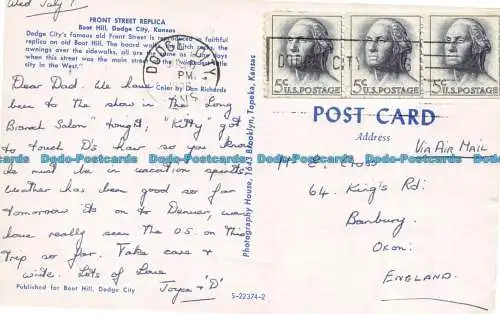 Wed July 7
FRONT STREET REPLICA
Boot Hill, Dodge City, Kansas
Dodge City's famous old Front Street is reproduced in faithful
replica on old Boot Hill. The board walks,
awnings over the sidewalks, all are the
when this street was the main street
city in the West."
Color by Don Richards
Dear Dad. We have
been to the show in the "Long
Branch Salon" tonight, "Kitty" got
to touch D's hair so you know
he must be in vacation spirits.
Weather has been good so far
tomorrow its on to Denver, we
have really seen the U.S. on this
trip so far. Take care &
write. Lots of Love
Joyce & 'D'
Published for Boot Hill, Dodge City
S-22374-2
Photography House, 1643 Brooklyn, Topeka, Kansas
DODGE CITY
PM
DODGE CITY
5c
5c
5c
POST CARD
Address
VIA AIR MAIL
Mr E. Cross
64 King's Rd:
Banbury
Oxon:
ENGLAND.
Dodo-Postcards Dodo-Postcards Dodo-Postcards Dodo-Postcards